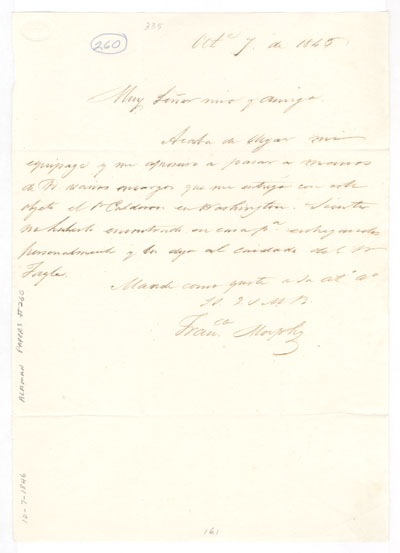 260
335
Octe 7. de 1846
Muy Señor mio y Amigo.
Acaba de llegar mi
equipage y me apresuro a pasar a manos
de V. varios encargos que me entregó con este
objeto el Sr Calderon en Washington. Siento
no haberle encontrado en casa pa entregarselos
personalmente y los dejo al cuidado del Sr
Tagle.
Mande como guste a su at° a°
Q B S M
Franco Morphy
ALAMAN PAPERS #260
10-7-1846
161